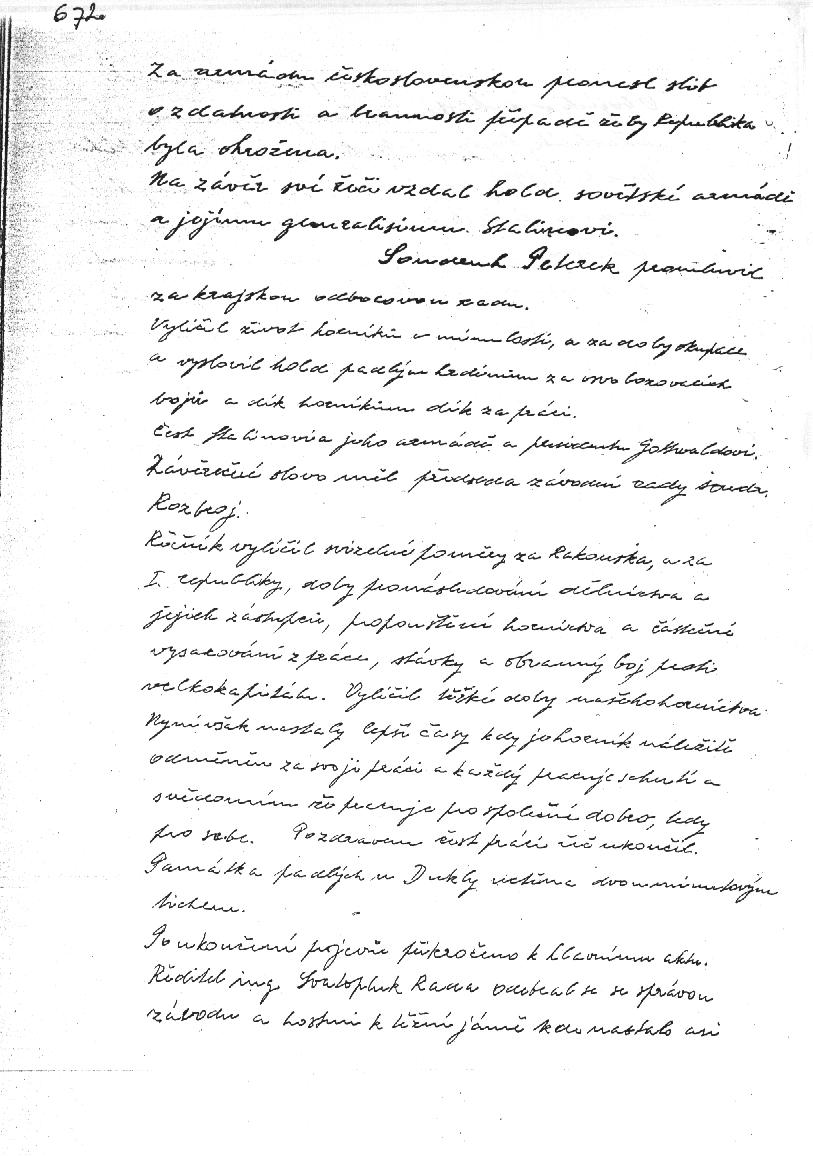 672.
Za armádu československou pronesl slib
o zdatnosti a brannosti případě žeby Republika
byla ohrožena.
Na závěr své řeči vzdal hold sovětské armádě
a jejímu generalisimu Stalinovi.
Soudruh Peterek promluvil
za krajskou odborovou radu.
Vylíčil život horníků v minulosti, a za doby okupace
a vyslovil hold padlým hrdinům za osvobozovacích
bojů a dík horníkům dík za práci.
Čest Stalinovi a jeho armádě a presidentu Gottwaldovi.
Závěrečné slovo měl předseda závodní rady soudr.
Rozbroj.
Řečník vylíčil svízelné poměry za Rakouska, a za
I. republiky, doby pronásledování dělnictva a
jejich zástupců, propouštění hornictva a částečné
vysazování z práce, stávky a obranný boj proti
velkokapitálu. Vylíčil těžké doby našeho hornictva.
Nyní však nastaly lepší časy kdy je horník náležitě
odměněn za svoji práci a každý pracuje s chutí a
svědomím že pracuje pro společné dobro, tedy
pro sebe. Pozdravem čest práci řeč ukončil.
Památka padlých u Dukly uctěna dvouminutovým
tichem.
Po ukončení projevů přikročeno k hlavnímu aktu.
Ředitel ing. Svatopluk Rada odebral se se správou
závodu a hostmi k těžní jámě kde nastalo asi